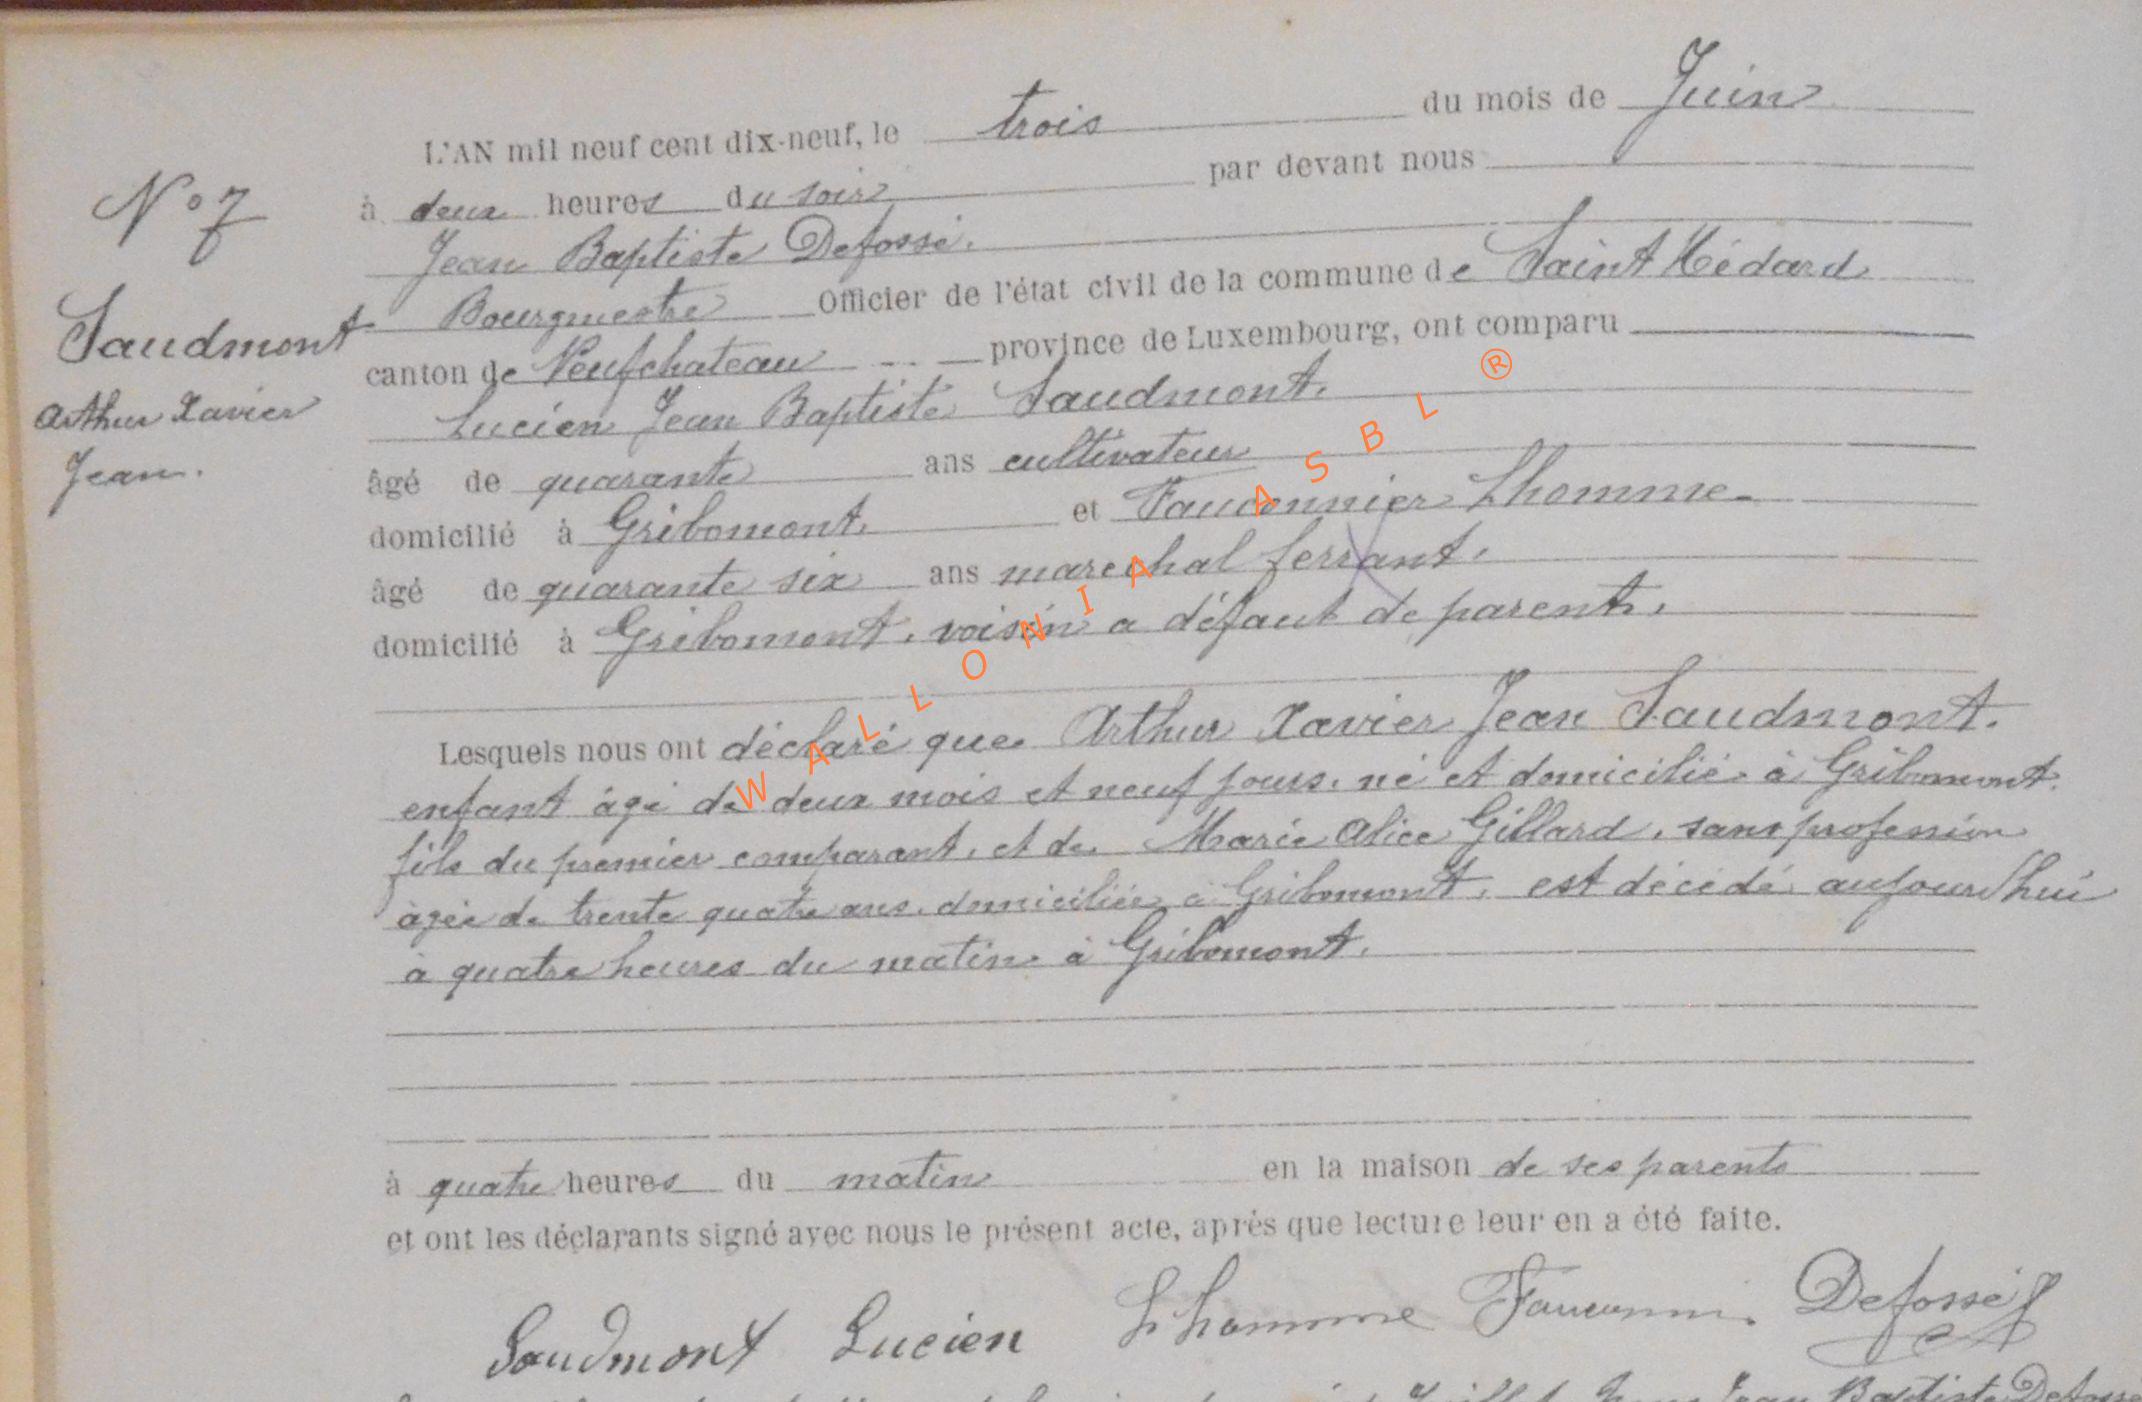 L'AN mil neuf cent dix-neuf, le trois du mois de Juin
à deux heures du soir par devant nous
Jean Baptiste Defossé.
Bourgmestre Officier de l'état civil de la commune de Saint Médard
canton de Neufchateau province de Luxembourg, ont comparu
Lucien Jean Baptiste Saudmont.
âgé de quarante ans cultivateur
domicilié à Gribomont. et Fauconnier Lhomme
âgé de quarante six ans marechal ferrant.
domicilié à Gribomont. voisin a défaut de parent.
N° 7
Saudmont
Arthur Xavier
Jean.
Lesquels nous ont déclaré que Arthur Xavier Jean Saudmont.
enfant âgé de deux mois et neuf jours. né et domicilié à Gribomont.
fils du premier comparant. et de Marie Alice Gillard. sans profession
âgée de trente quatre ans. domiciliée à Gribomont. est décédé aujourd'hui
à quatre heures du matin à Gribomont.
à quatre heures du matin en la maison de ses parents
et ont les déclarants signé avec nous le présent acte, après que lecture leur en a été faite.
Saudmont Lucien Lhomme Defossé
Jean Baptiste
WALLONIA ASBL ®